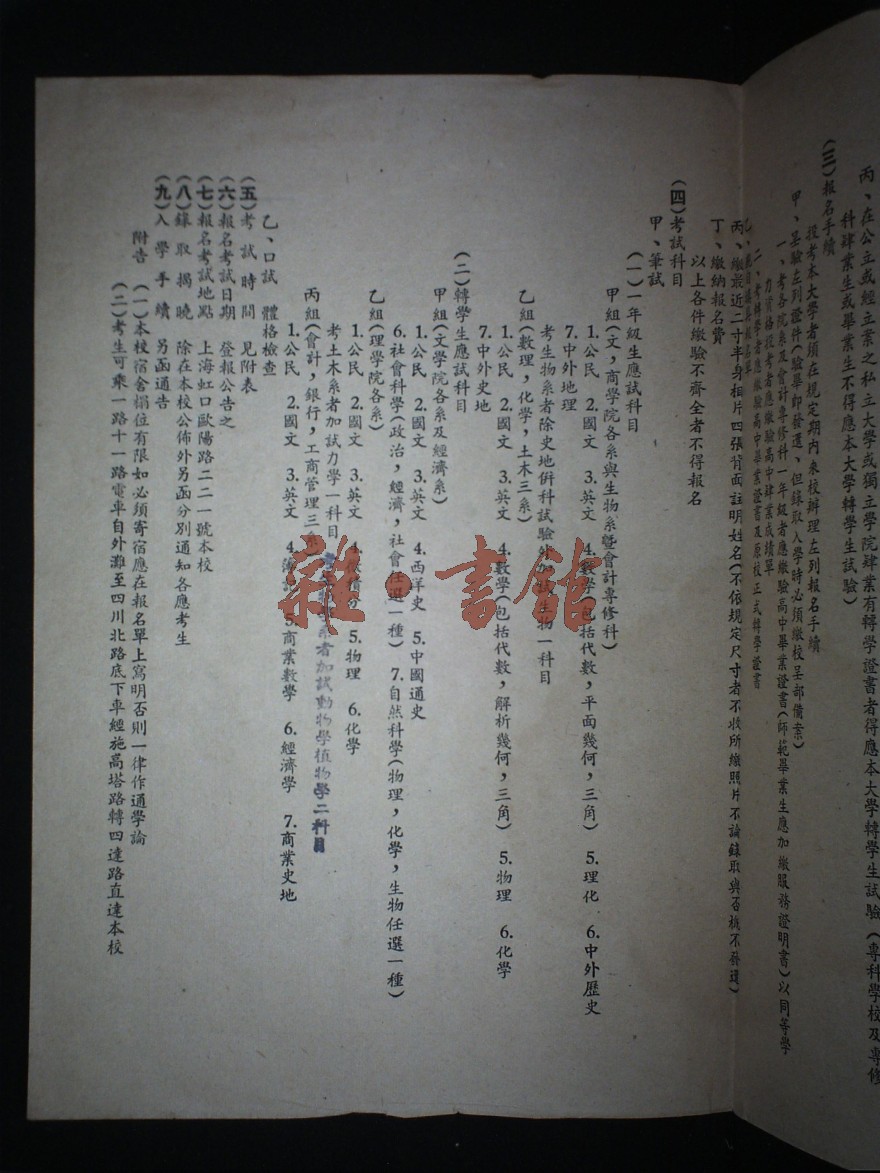 丙、在公立或經立案之私立大學或獨立學院肆業有轉學證書者得應本大學轉學生試驗（專科學校及專修
科肆業生或畢業生不得應本大學轉學生試驗）
（三）報名手續
投考本大學者須在規定期內來校辦理左列報名手續
甲、呈驗左列證件（驗畢即發還，但錄取入學時必須繳校呈部備案）
一、考各院系及會計專修科一年級者應繳驗高中畢業證書（師範畢業生應加繳服務證明書）以同等學
力資格投考者應繳驗高中肆業成績單
二、考轉學生者應繳驗高中畢業證書及原校正式轉學證書
丙、繳最近二寸半身相片四張背面註明姓名（不依規定尺寸者不收所繳照片不論錄取與否概不發還）
丁、繳納報名費
以上各件繳驗不齊全者不得報名
（四）考試科目
甲、筆試
（一）一年級生應試科目
甲組（文，商學院各系與生物系暨會計專修科）
1.公民 2.國文 3.英文 4.數學（包括代數，平面幾何，三角） 5.理化 6.中外歷史
7.中外地理
考生物系者除史地併科試驗外加試生物一科目
乙組（數理，化學，土木三系）
1.公民 2.國文 3.英文 4.數學（包括代數，解析幾何，三角） 5.物理 6.化學
7.中外史地
（二）轉學生應試科目
甲組（文學院各系及經濟系）
1.公民 2.國文 3.英文 4.西洋史 5.中國通史
6.社會科學（政治，經濟，社會任選一種） 7.自然科學（物理，化學，生物任選一種）
乙組（理學院各系）
1.公民 2.國文 3.英文 4.微積分 5.物理 6.化學
考土木系者加試力學一科目 系者加試動物學植物學二科目
丙組（會計，銀行，工商管理三系）
1.公民 2.國文 3.英文 4.簿記 5.商業數學 6.經濟學 7.商業史地
乙、口試 體格檢查
（五）考試時間 見附表
（六）報名考試日期 登報公告之
（七）報名考試地點 上海虹口歐陽路二二一號本校
（八）錄取揭曉 除在本校公佈外另函分別通知各應考生
（九）入學手續 另函通告
附告 （一）本校宿舍榻位有限如必須寄宿應在報名單上寫明否則一律作通學論
（二）考生可乘一路十一路電車自外灘至四川北路底下車經施高塔路轉四達路直達本校
雜·書館